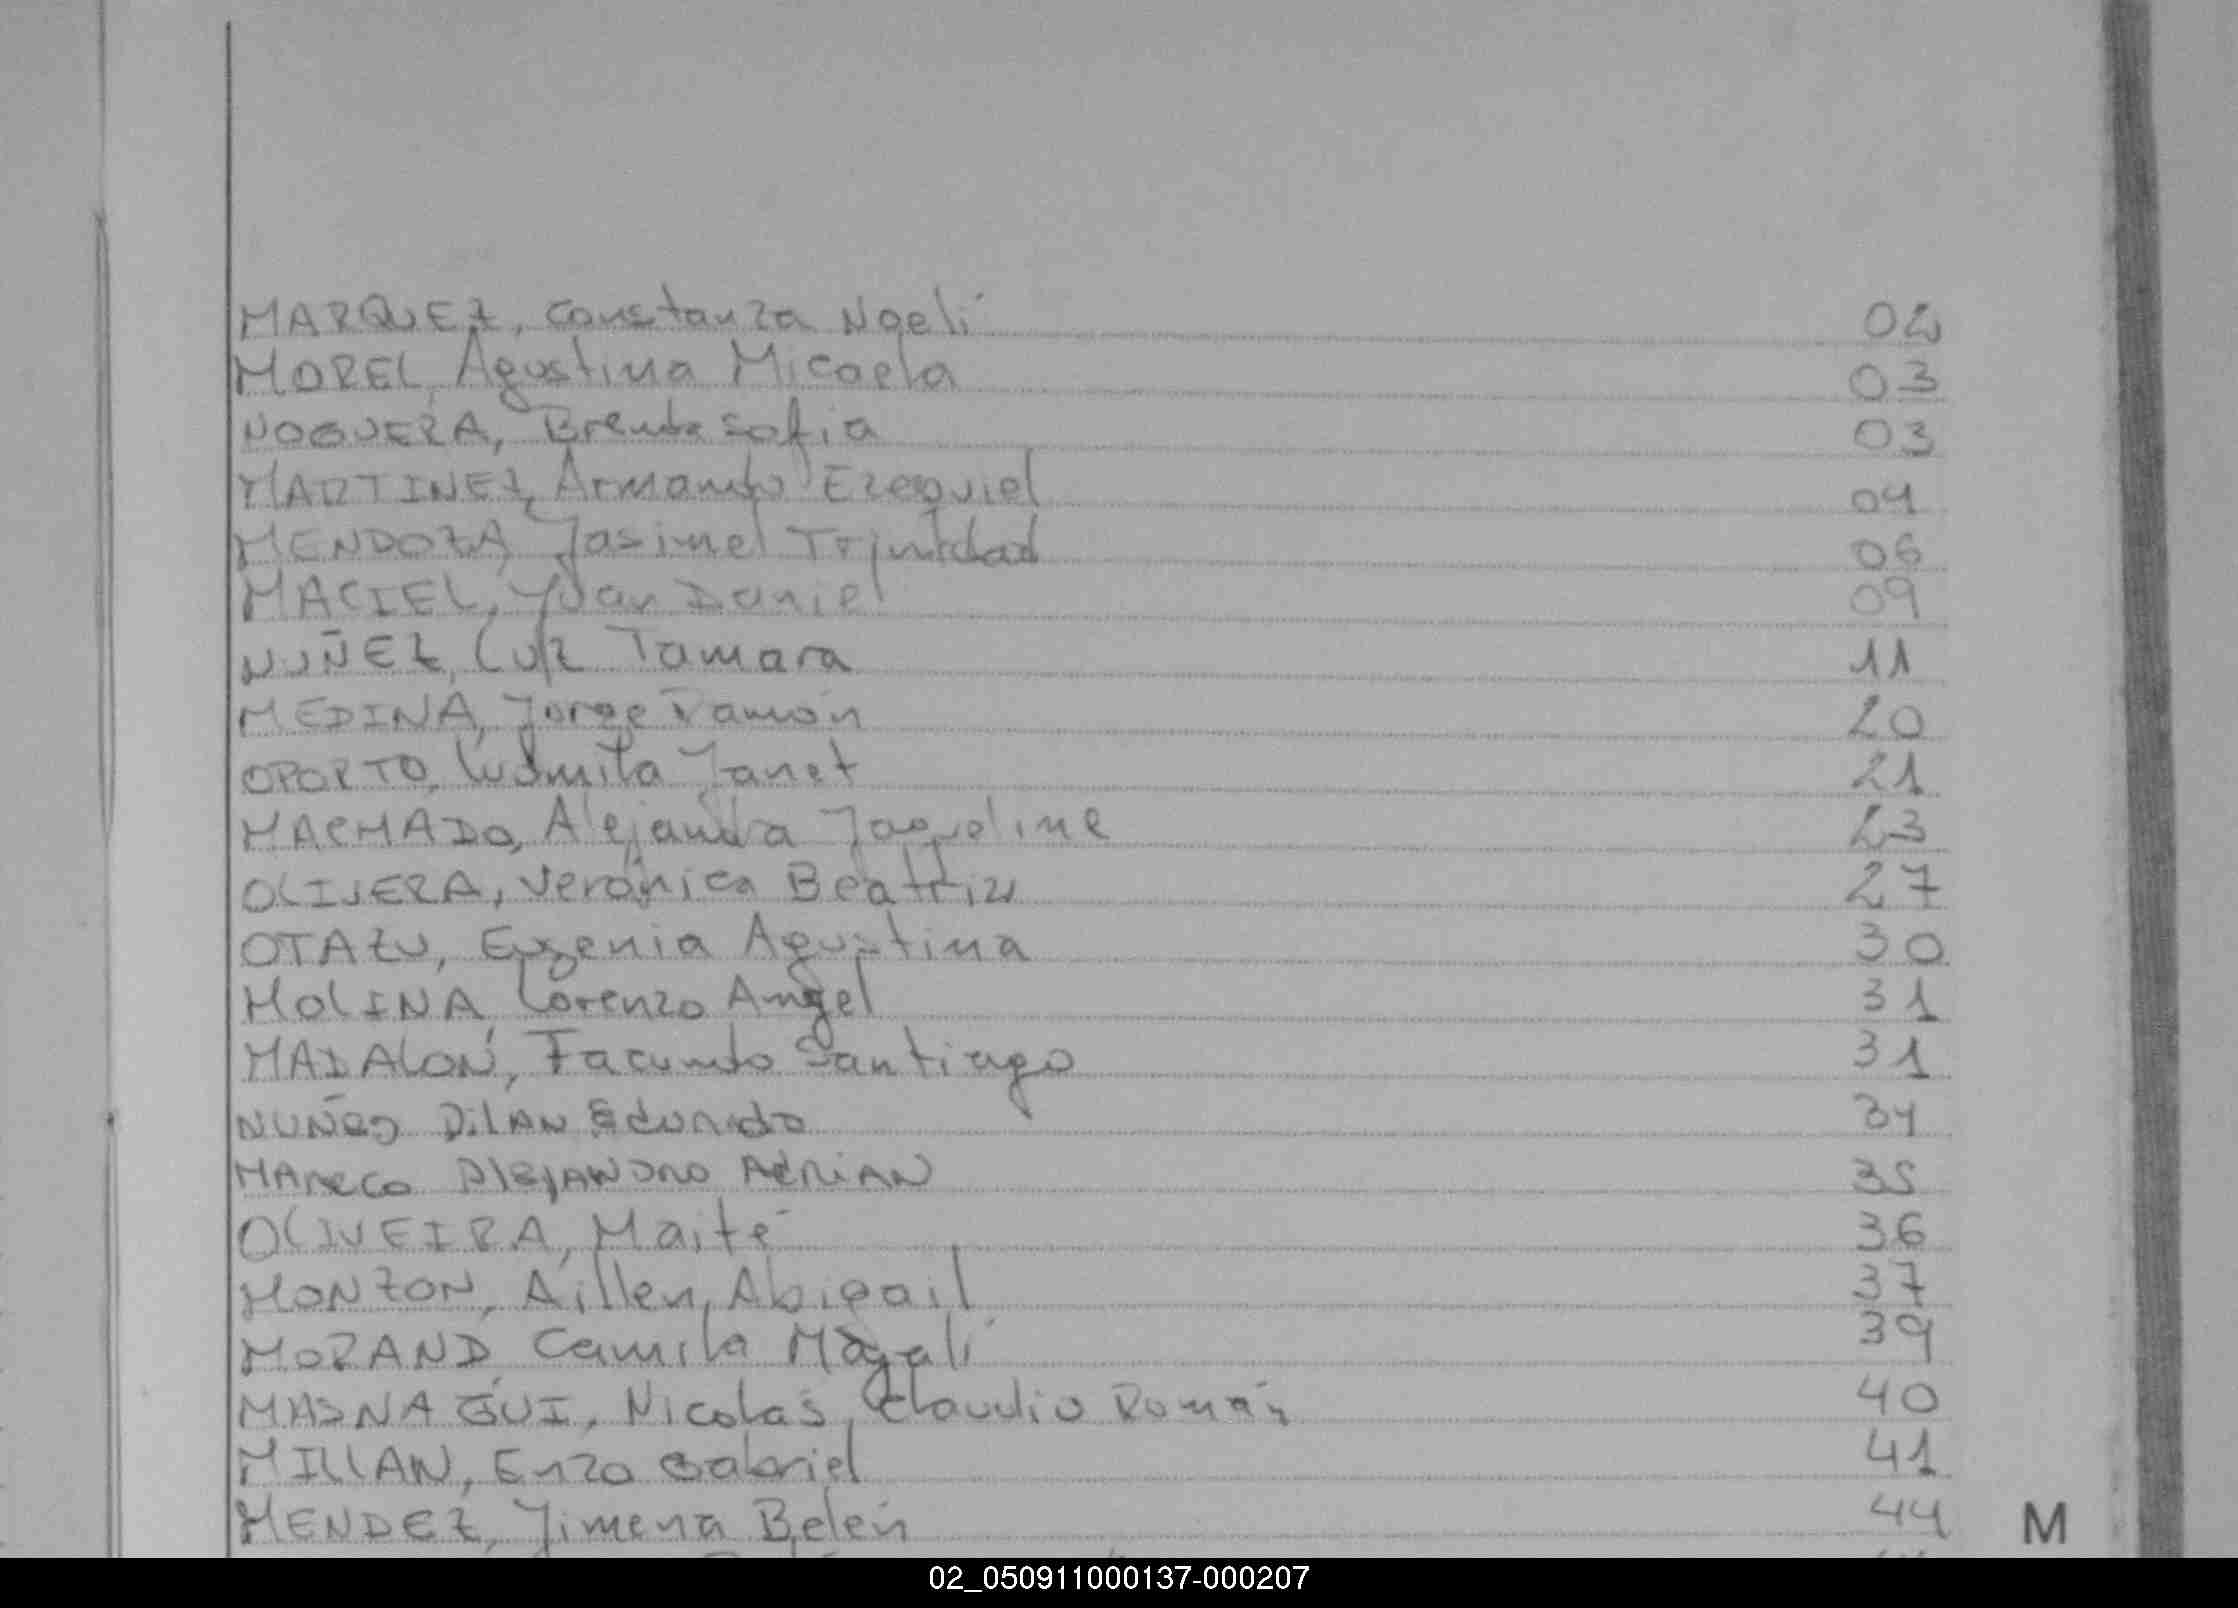 MARQUEZ, Constanza Noelí 02
MOREL, Agustina Micaela 03
NOGUERA, Brenda Sofia 03
MARTINEZ, Armando Ezequiel 04
MENDOZA, Jasimel Trinidad 06
MACIEL, Yvan Daniel 09
NUÑEZ, Luz Tamara 11
MEDINA, Jorge Ramón 20
OPORTO, Ludmila Janet 21
MACHADO, Alejandra Jaqueline 23
OLIVERA, Verónica Beatriz 27
OTAZU, Eugenia Agustina 30
MOLINA, Lorenzo Angel 31
MADALON, Facundo Santiago 31
NUÑES DilAN Eduardo 34
MAReco AlejANDRO ADRIAN 35
OLIVEIRA, Maité 36
MONZON, Aillen, Abigail 37
MORAND, Camila Magalí 39
Nicolas, Claudio Román 40
MILLAN, Enzo Gabriel 41
MENDEZ, Jimena Belén 44
M
02_050911000137-000207